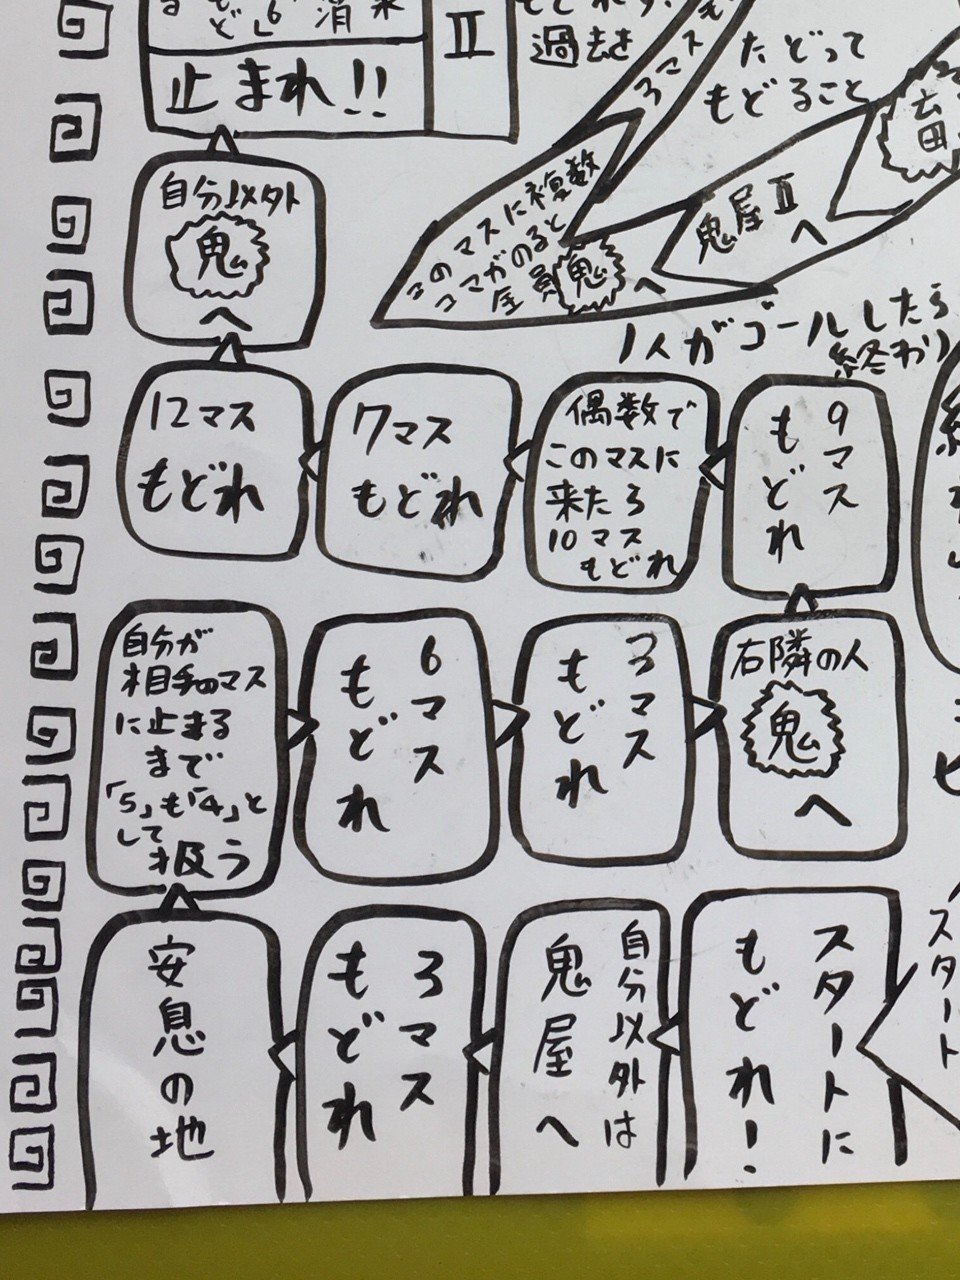 止まれ!!
II
過去を
たどって
もどること
3マス
自分以外
鬼
へ
このマスに複数
コマがのると
全員鬼へ
鬼屋II
へ
1人がゴールしたら
終わり
12マス
もどれ
7マス
もどれ
偶数で
このマスに
来たら
10マス
もどれ
9マス
もどれ
自分が
相手のマス
に止まる
まで
「5」も「4」と
して
扱う
6マス
もどれ
3マス
もどれ
右隣の人
鬼
へ
安息の地
3マス
もどれ
自分以外は
鬼屋へ
スタートに
もどれ!
スタート